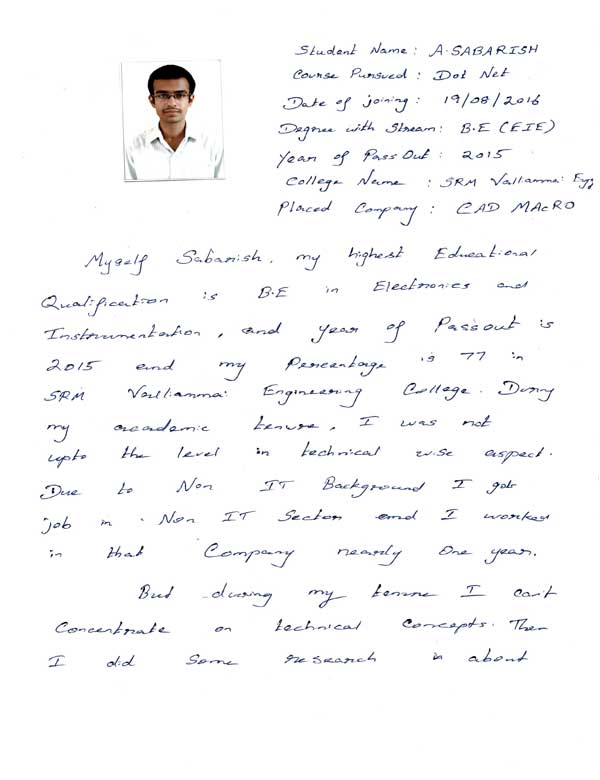 Student Name : A.SABARISH
Course Pursued : Dot Net
Date of joining : 19/08/2016
Degree with Stream : B.E (EIE)
Year of Pass Out : 2015
College Name : SRM Valliammai Eng
Placed Company : CAD MAcRO
Myself Sabarish, my highest Educational
Qualification is B.E in Electronics and
Instrumentation, and year of Passout is
2015 and my Percentage is 77 in
SRM Valliammai Engineering College. During
my academic tenure, I was not
upto the level in technical wise aspect.
Due to Non IT Background I got
job in Non IT Sector and I worked
in that Company nearly One year.
But during my tenure I can't
Concentrate on technical Concepts. Then
I did Some research in about